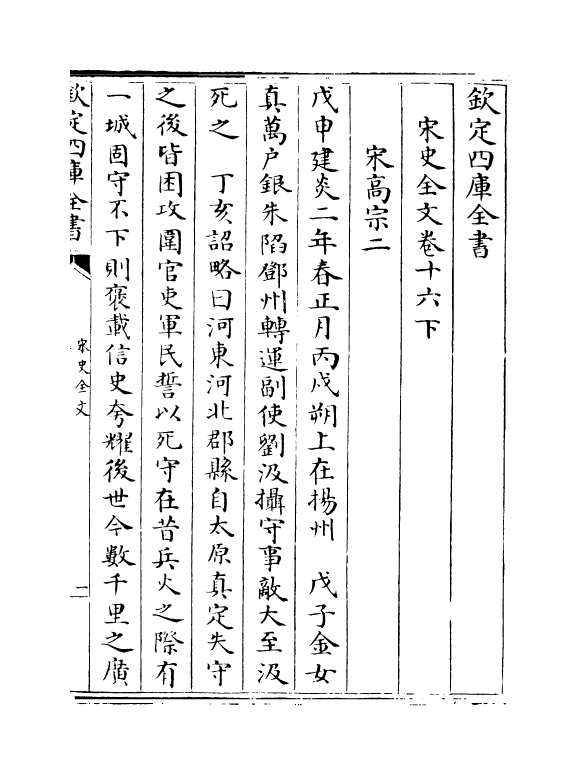 欽定四庫全書
宋史全文卷十六下
宋高宗二
戊申建炎二年春正月丙戌朔上在揚州　戊子金女
真萬戶銀朱陷鄧州轉運副使劉汲攝守事敵大至汲
死之　丁亥詔略曰河東河北郡縣自太原真定失守
之後皆困攻圍官吏軍民誓以死守在昔兵火之際有
一城固守不下則褒載信史夸耀後世今數千里之廣
欽定四庫全書
宋史全文